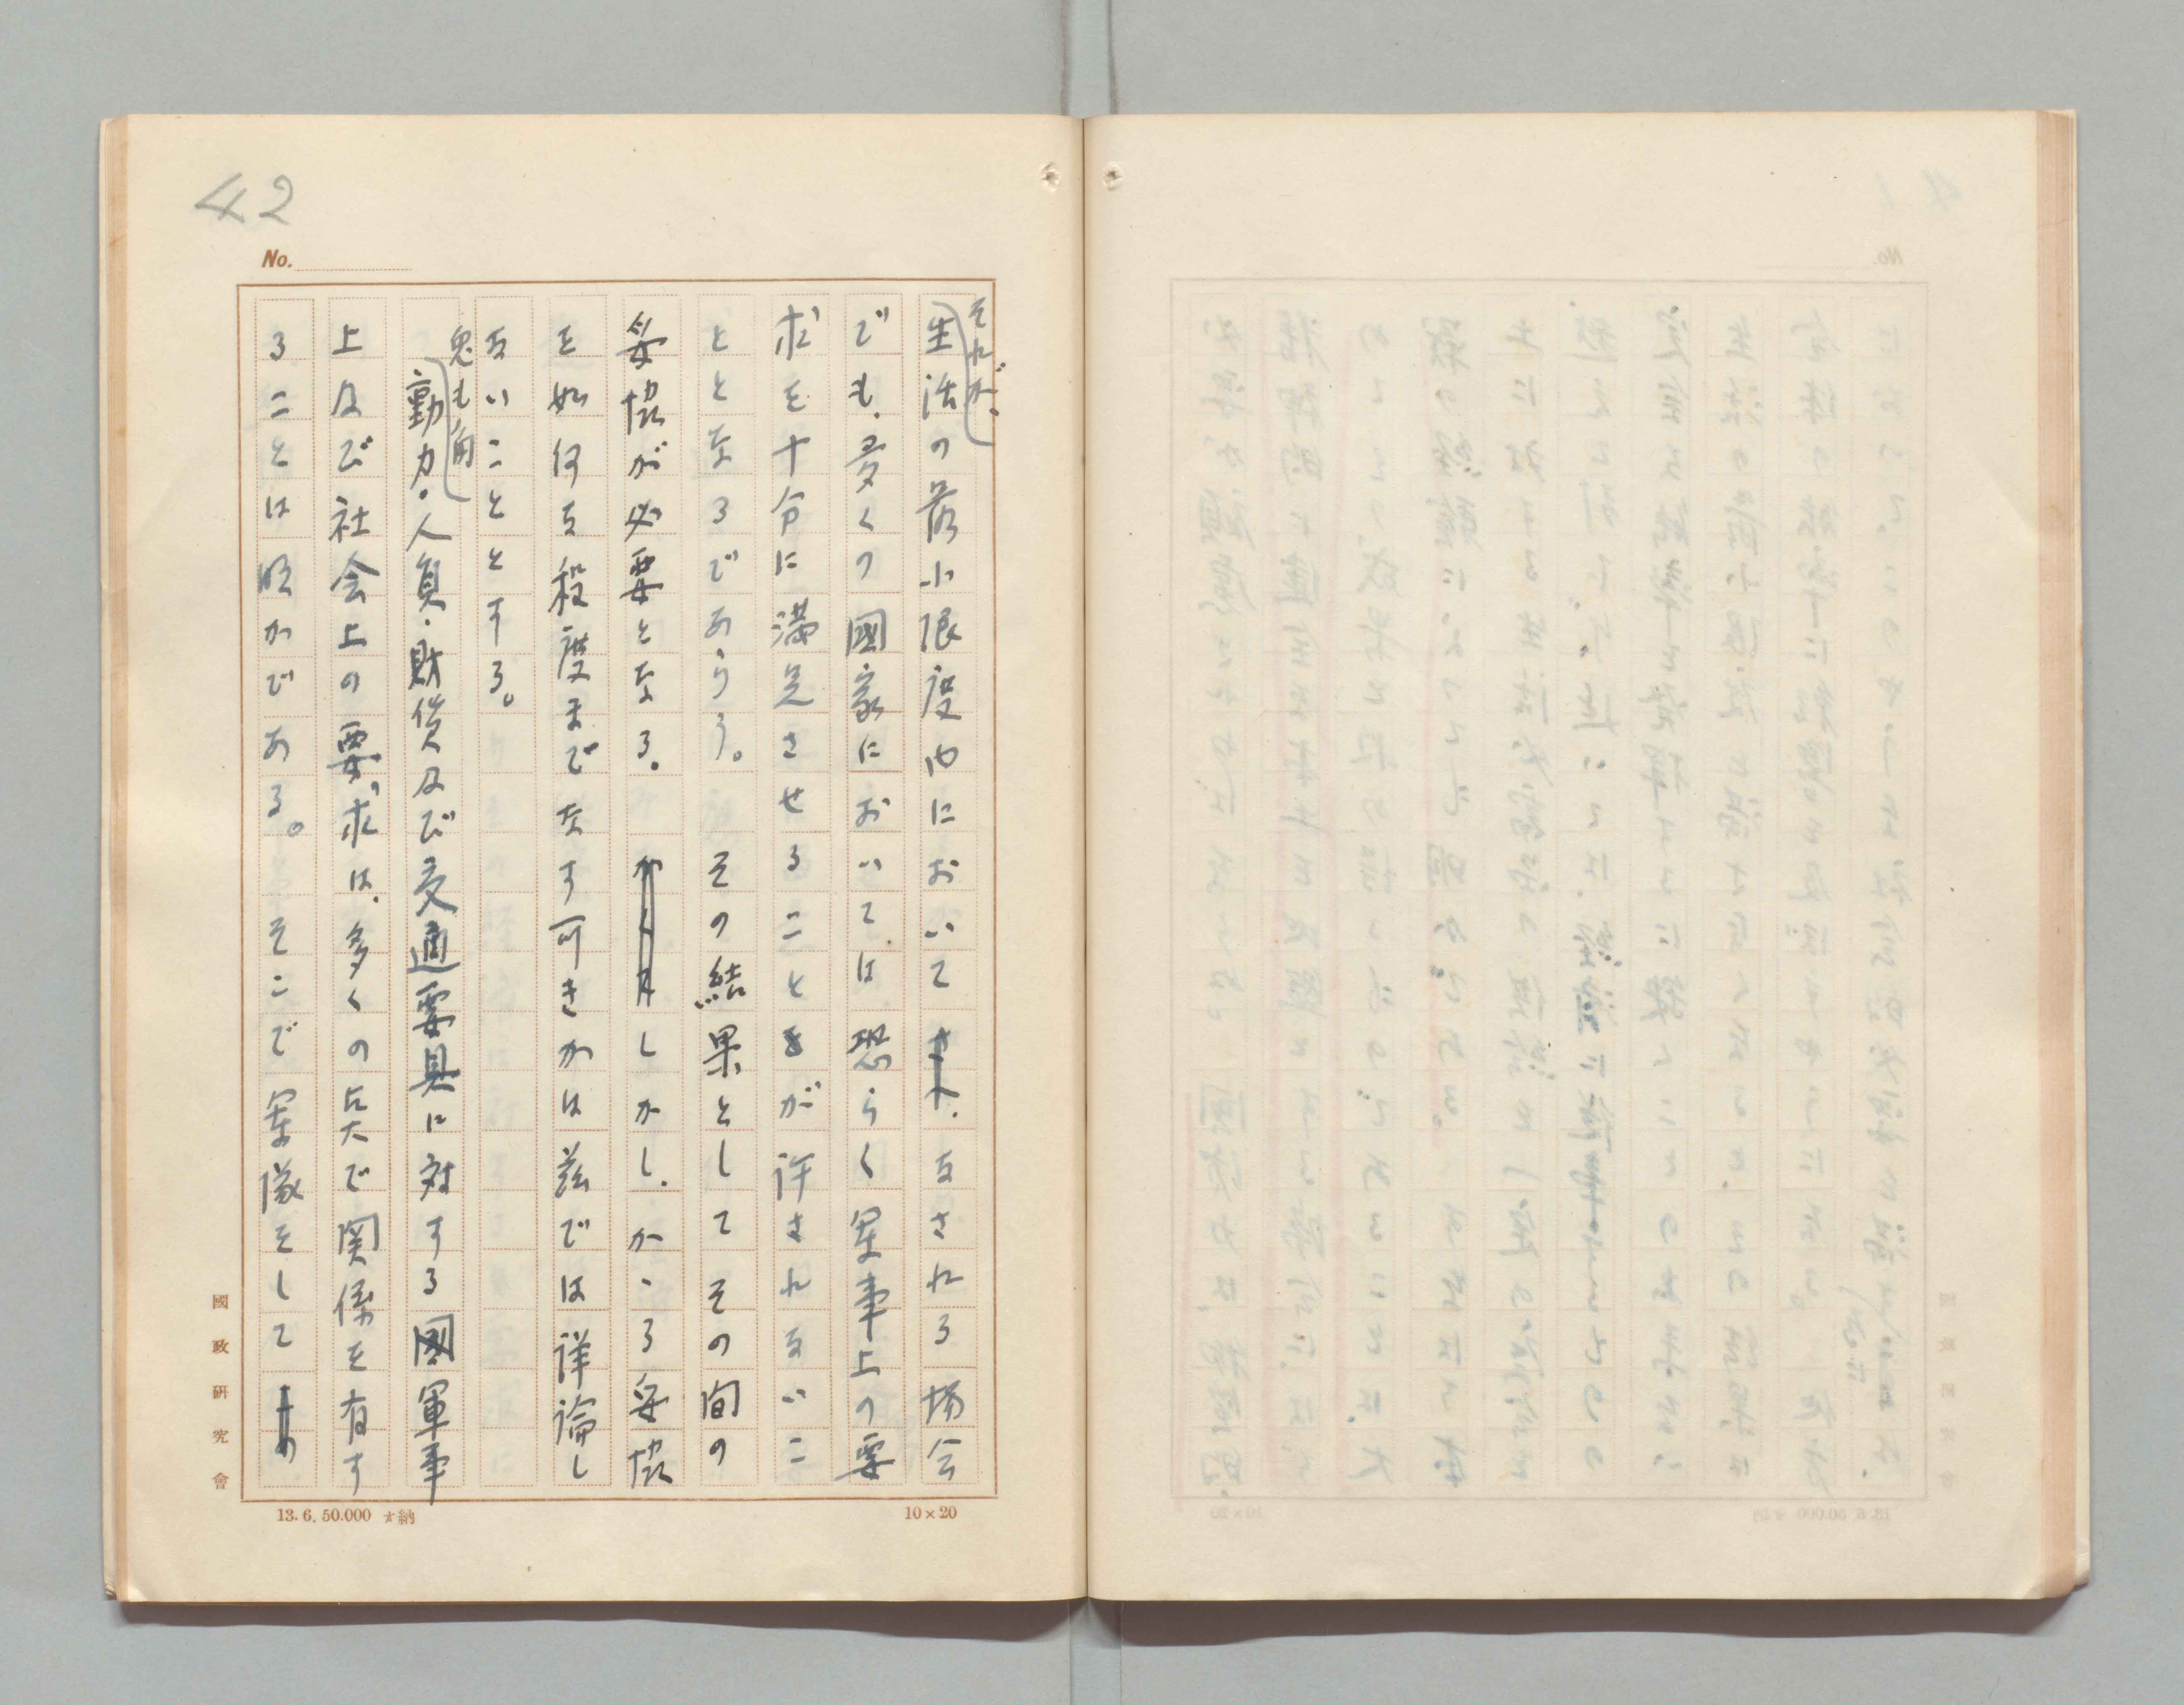 42
No.
それが、
生活の最小限度内においてなされる場合
でも、多くの國家においては恐らく軍事上の要
求を十分に満足させることが許されないこ
ととなるであらう。その結果としてその間の
妥協が必要となる。しかし、かゝる妥協
を如何なる程度までなす可きかは茲では詳論し
ないこととする。
兎も角
動力・人員・財貨及び交通要具に対する國軍事
上及び社会上の要求は、多くの点で関係を有す
ることは明かである。そこで軍隊そして
國政研究會
13.6.50.000 納
10×20